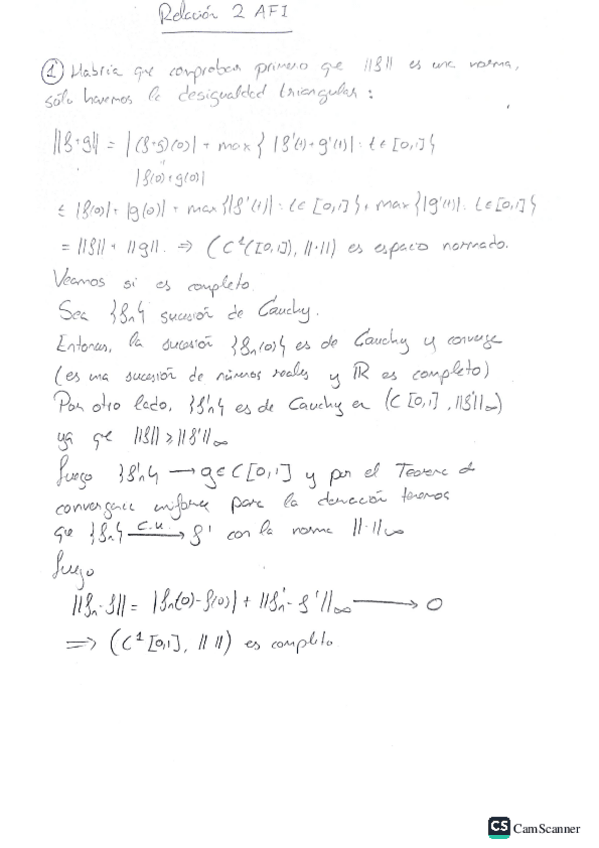 Relación 2 AFI
① Habría que comprobar primero que ||f|| es una norma,
sólo haremos la desigualdad triangular:
||f+g|| = |(f+g)(0)| + max{|f'(t)+g'(t)| : t∈[0,1]}
"
|f(0)+g(0)|
≤ |f(0)| + |g(0)| + max{|f'(t)| : t∈[0,1]} + max{|g'(t)| : t∈[0,1]}
= ||f|| + ||g||. ⇒ (C¹([0,1]), ||·||) es espacio normado.
Veamos si es completo.
Sea {fn} sucesión de Cauchy.
Entonces, la sucesión {fn(0)} es de Cauchy y converge
(es una sucesión de números reales y ℝ es completo)
Por otro lado, {f'n} es de Cauchy en (C[0,1], ||f'||∞)
ya que ||f|| ≥ ||f'||∞
luego {f'n} → g ∈ C[0,1] y por el Teorema de
convergencia uniforme para la derivación tenemos
que {fn} —c.u.→ f' con la norma ||·||∞
luego
||fn-f|| = |fn(0)-f(0)| + ||fn'-f'||∞ → 0
⇒ (C¹[0,1], || ||) es completo
CS CamScanner